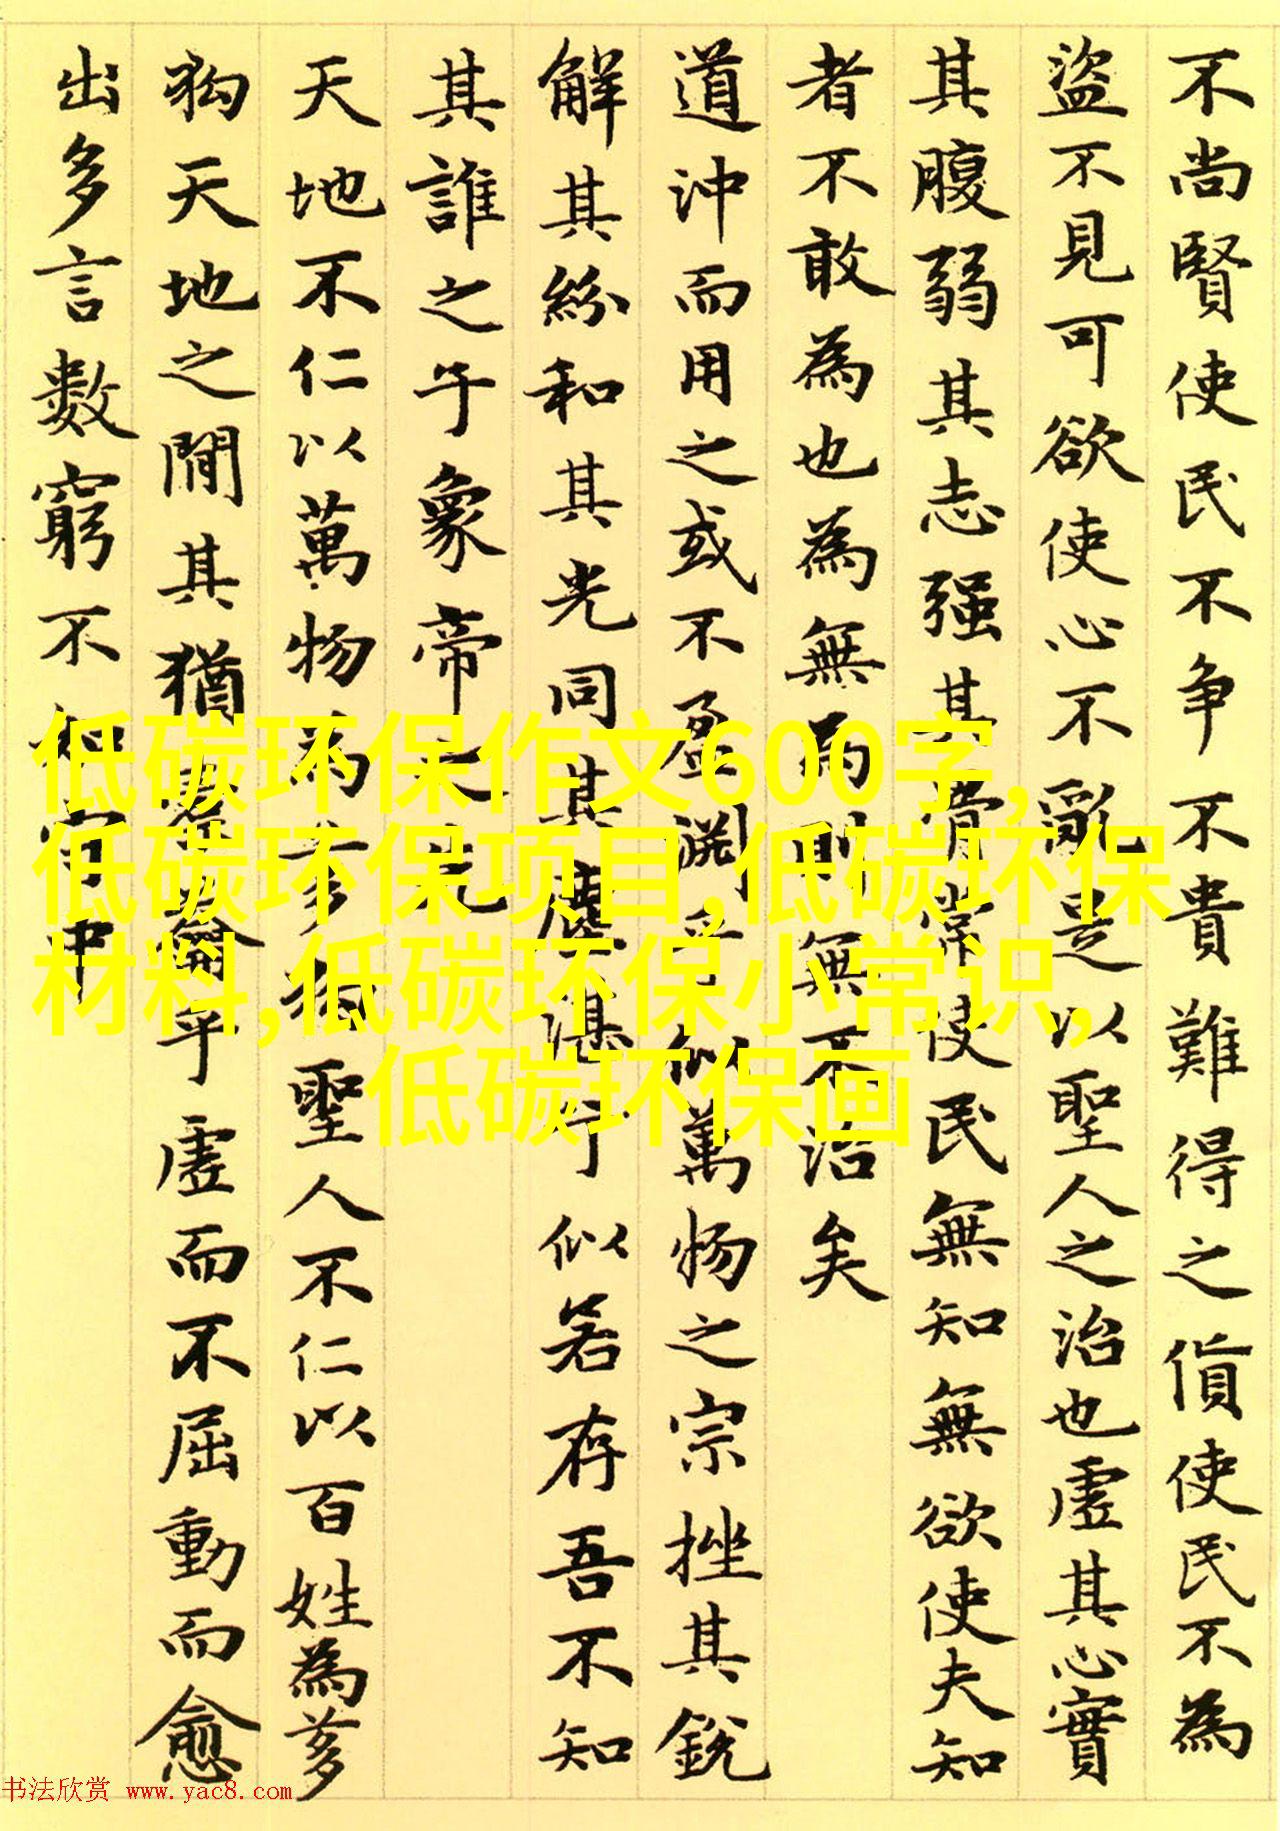 不尚賢使民不争不貴難得之貨使民不為
盜不見可欲使心不亂是以聖人之治也虛其心實
其腹弱其志强其骨常使民無知無欲使夫知
者不敢為也為無為則無不治矣
道沖而用之或不盈淵乎似萬物之宗挫其銳
解其紛和其光同其塵湛乎似若存吾不知
其誰之子象帝之先
天地不仁以萬物為芻狗聖人不仁以百姓為芻
狗天地之間其猶橐籥乎虛而不屈動而愈
出多言數窮不如守中
低碳环保作文600字,
低碳环保项目,低碳环保
材料,低碳环保小常识,
低碳环保画
书法欣赏 www.yac8.com